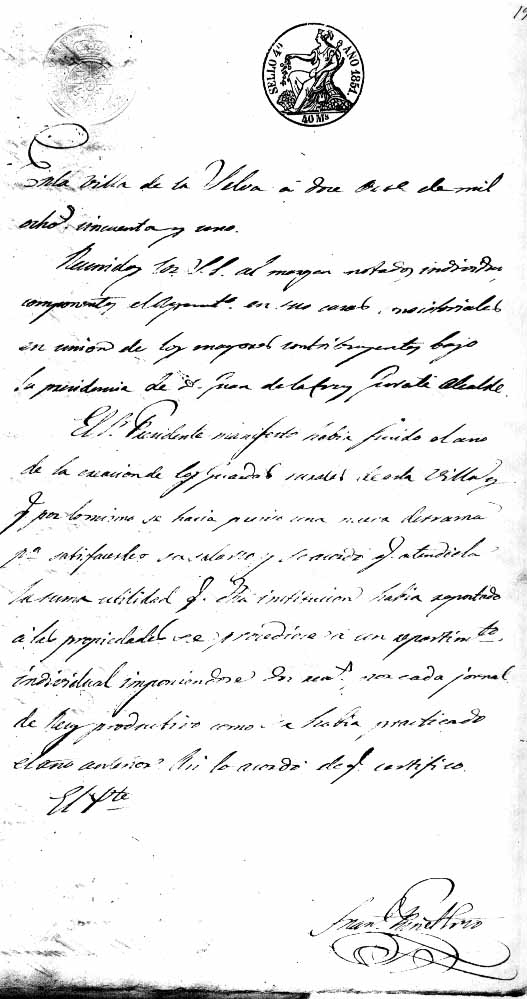 SELLO 4º AÑO 1851.
40 Ms
En la Villa de la Selva á doce de mil
ochos. cincuenta y uno.
Reunidos los S.S. al margen notados, individuos
componentes el Ayuntº. en sus casas consistoriales
en union de los mayores contribuyentes bajo
la presidencia de D. Juan de la Cruz Alcalde.
El Sr. Presidente manifestó habia finido el año
de la creacion de los Guardas rurales de esta Villa y
q. por lo mismo se hacia una nueva derrama
pª satisfacerles su salario y se acordó q. atendida
la suma utilidad q. dha institucion habia reportado
á las propiedades se procediese á un repartimto
individual imponiendose dos reas. por cada jornal
de Rey productivo como se habia practicado
el año anterior. Asi lo acordó de q. certifico.
El Pte
Franco.